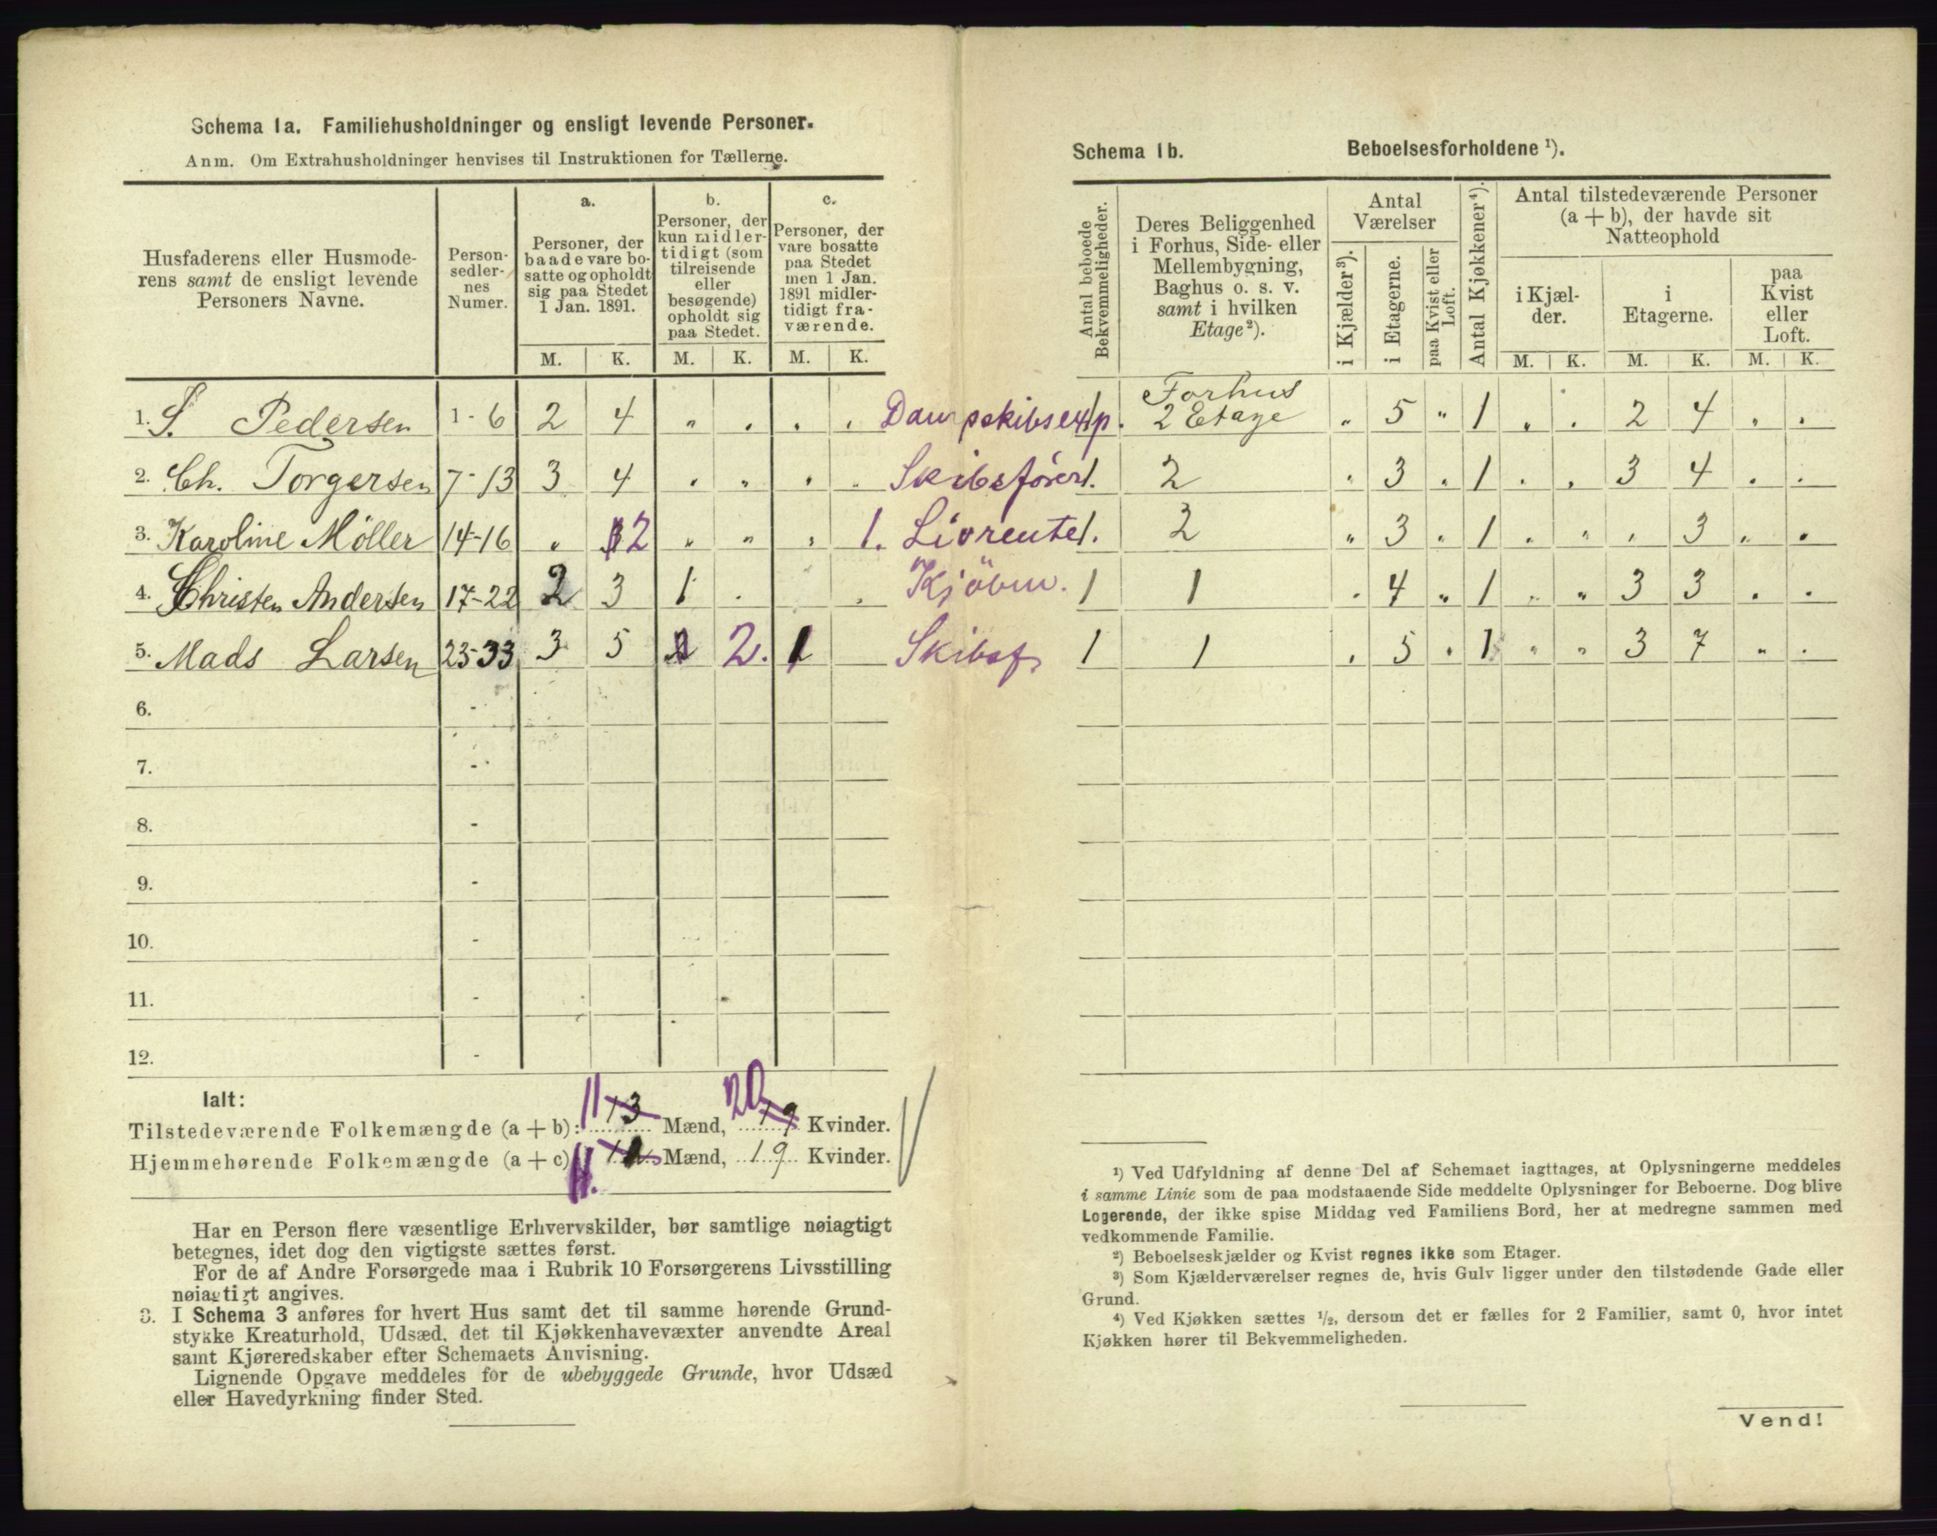 Schema 1a. Familiehusholdninger og ensligt levende Personer.
Anm. Om Extrahusholdninger henvises til Instruktionen for Tællerne.
Husfaderens eller Husmoderens samt de ensligt levende Personers Navne.
Personsedlernes Numer.
a.
Personer, der baade vare bosatte og opholdt sig paa Stedet 1 Jan. 1891.
b.
Personer, der kun midlertidigt (som tilreisende eller besøgende) opholdt sig paa Stedet.
c.
Personer, der vare bosatte paa Stedet men 1 Jan. 1891 midlertidigt fraværende.
M. K. M. K. M. K.
1. S. Pedersen 1-6 2 4 " . . . Dampskibsexp.
2. Ch. Torgersen 7-13 3 4 . " . . Skibsfører
3. Karoline Møller 14-16 " 2 " " . 1. Livrente
4. Christen Andersen 17-22 2 3 1 . . Kjöbm.
5. Mads Larsen 23-33 3 5 2. 1 Skibsf.
6. -
7. -
8. -
9. -
10. -
11. -
12. -
Ialt:
Tilstedeværende Folkemængde (a + b): 11 13 Mænd, 20 19 Kvinder.
Hjemmehørende Folkemængde (a + c) 11. Mænd, 19 Kvinder.
Har en Person flere væsentlige Erhvervskilder, bør samtlige nøiagtigt
betegnes, idet dog den vigtigste sættes først.
For de af Andre Forsørgede maa i Rubrik 10 Forsørgerens Livsstilling
nøiagtigt angives.
3. I Schema 3 anføres for hvert Hus samt det til samme hørende Grund-
stykke Kreaturhold, Udsæd, det til Kjøkkenhavevæxter anvendte Areal
samt Kjøreredskaber efter Schemaets Anvisning.
Lignende Opgave meddeles for de ubebyggede Grunde, hvor Udsæd
eller Havedyrkning finder Sted.
Schema 1b. Beboelsesforholdene ¹).
Antal beboede Bekvemmeligheder.
Deres Beliggenhed i Forhus, Side- eller Mellembygning, Baghus o. s. v. samt i hvilken Etage ²).
Antal Værelser
i Kjælder ³).
i Etagerne.
paa Kvist eller Loft.
Antal Kjøkkener ⁴).
Antal tilstedeværende Personer (a + b), der havde sit Natteophold
i Kjælder.
i Etagerne.
paa Kvist eller Loft.
M. K. M. K. M. K.
1 Forhus 2 Etage " 5 " 1 . . 2 4 . .
1. 2 " 3 " 1 . . 3 4 . .
1. 2 " 3 . 1 . " . 3 . .
1 1 . 4 " 1 " " 3 3 . .
1 1 . 5 . 1 " " 3 7 " .
¹) Ved Udfyldning af denne Del af Schemaet iagttages, at Oplysningerne meddeles
i samme Linie som de paa modstaaende Side meddelte Oplysninger for Beboerne. Dog blive
Logerende, der ikke spise Middag ved Familiens Bord, her at medregne sammen med
vedkommende Familie.
²) Beboelseskjælder og Kvist regnes ikke som Etager.
³) Som Kjælderværelser regnes de, hvis Gulv ligger under den tilstødende Gade eller
Grund.
⁴) Ved Kjøkken sættes ½, dersom det er fælles for 2 Familier, samt 0, hvor intet
Kjøkken hører til Bekvemmeligheden.
Vend!